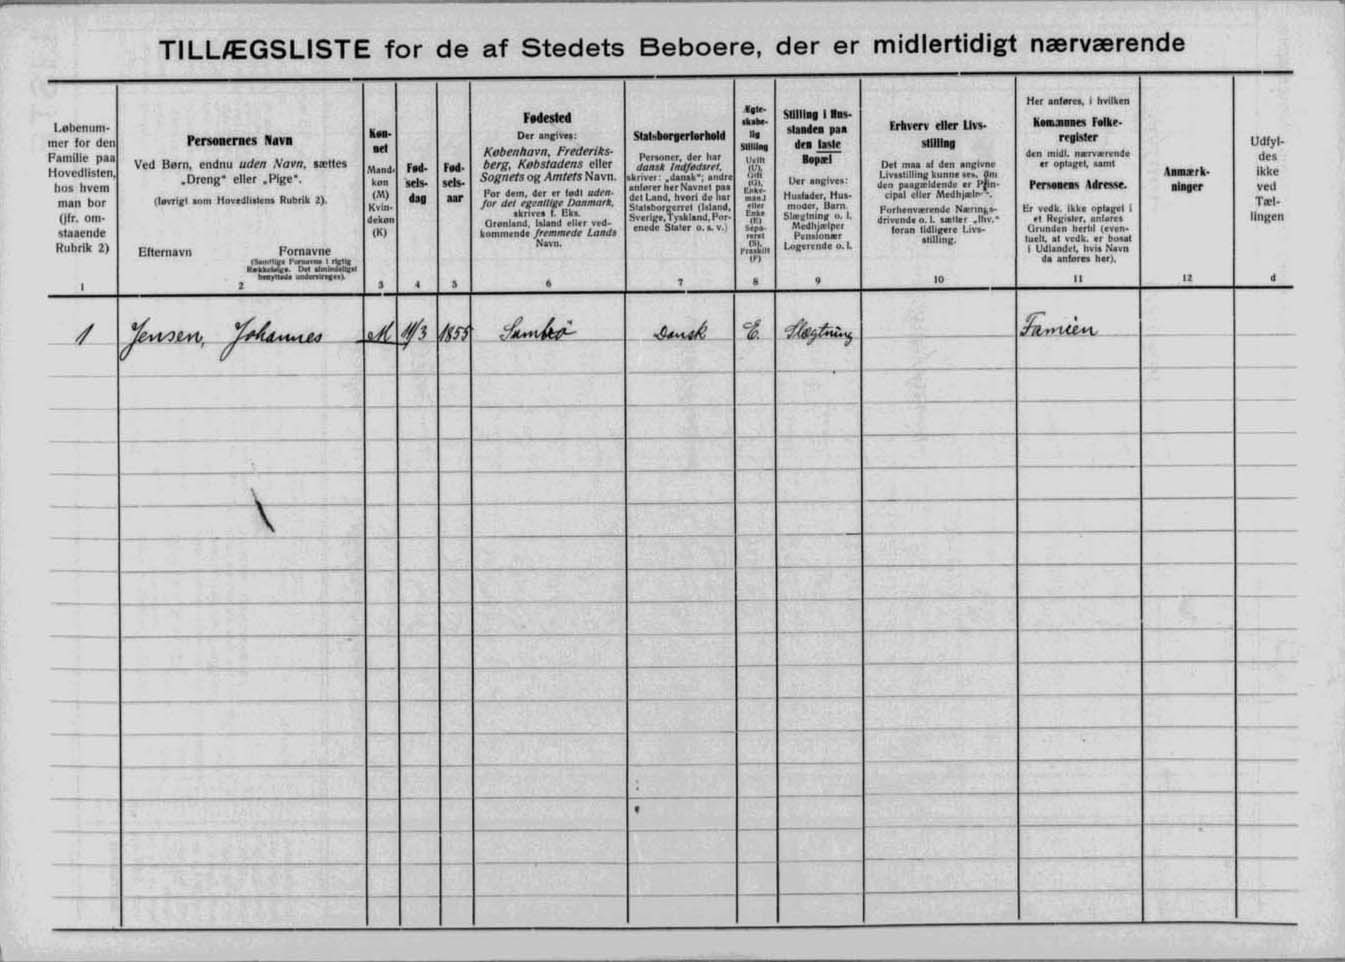 TILLÆGSLISTE for de af Stedets Beboere, der er midlertidigt nærværende
Løbenum-
mer for den
Familie paa
Hovedlisten,
hos hvem
man bor
(jfr. om-
staaende
Rubrik 2)
1
Personernes Navn
Ved Børn, endnu uden Navn, sættes
„Dreng“ eller „Pige“.
(Iøvrigt som Hovedlistens Rubrik 2).
Efternavn Fornavne
(Samtlige Fornavne i rigtig
Rækkefølge. Det almindeligst
benyttede understreges).
2
Køn-
net
Mand-
køn
(M)
Kvin-
dekøn
(K)
3
Fød-
sels-
dag
4
Fød-
sels-
aar
5
Fødested
Der angives:
København, Frederiks-
berg, Købstadens eller
Sognets og Amtets Navn.
For dem, der er født uden-
for det egentlige Danmark,
skrives f. Eks.
Grønland, Island eller ved-
kommende fremmede Lands
Navn.
6
Statsborgerforhold
Personer, der har
dansk Indfødsret,
skriver: „dansk“; andre
anfører her Navnet paa
det Land, hvori de har
Statsborgerret (Island,
Sverige, Tyskland, For-
enede Stater o. s. v.)
7
Ægte-
skabe-
lig
Stilling
Ugift
(U),
Gift
(G),
Enke-
mand
eller
Enke
(E)
Sepa-
reret
(S),
Fraskilt
(F)
8
Stilling i Hus-
standen paa
den faste
Bopæl
Der angives:
Husfader, Hus-
moder, Barn,
Slægtning o. l.
Medhjælper
Pensionær
Logerende o. l.
9
Erhverv eller Livs-
stilling
Det maa af den angivne
Livsstilling kunne ses, om
den paagældende er Prin-
cipal eller Medhjælper.
Forhenværende Nærings-
drivende o. l. sætter „fhv.“
foran tidligere Livs-
stilling.
10
Her anføres, i hvilken
Kommunes Folke-
register
den midl. nærværende
er optaget, samt
Personens Adresse.
Er vedk. ikke optaget i
et Register, anføres
Grunden hertil (even-
tuelt, at vedk. er bosat
i Udlandet, hvis Navn
da anføres her).
11
Anmærk-
ninger
12
Udfyl-
des
ikke
ved
Tæl-
lingen
d
1 Jensen, Johannes M 11/3 1855 Dansk E. Slægtning